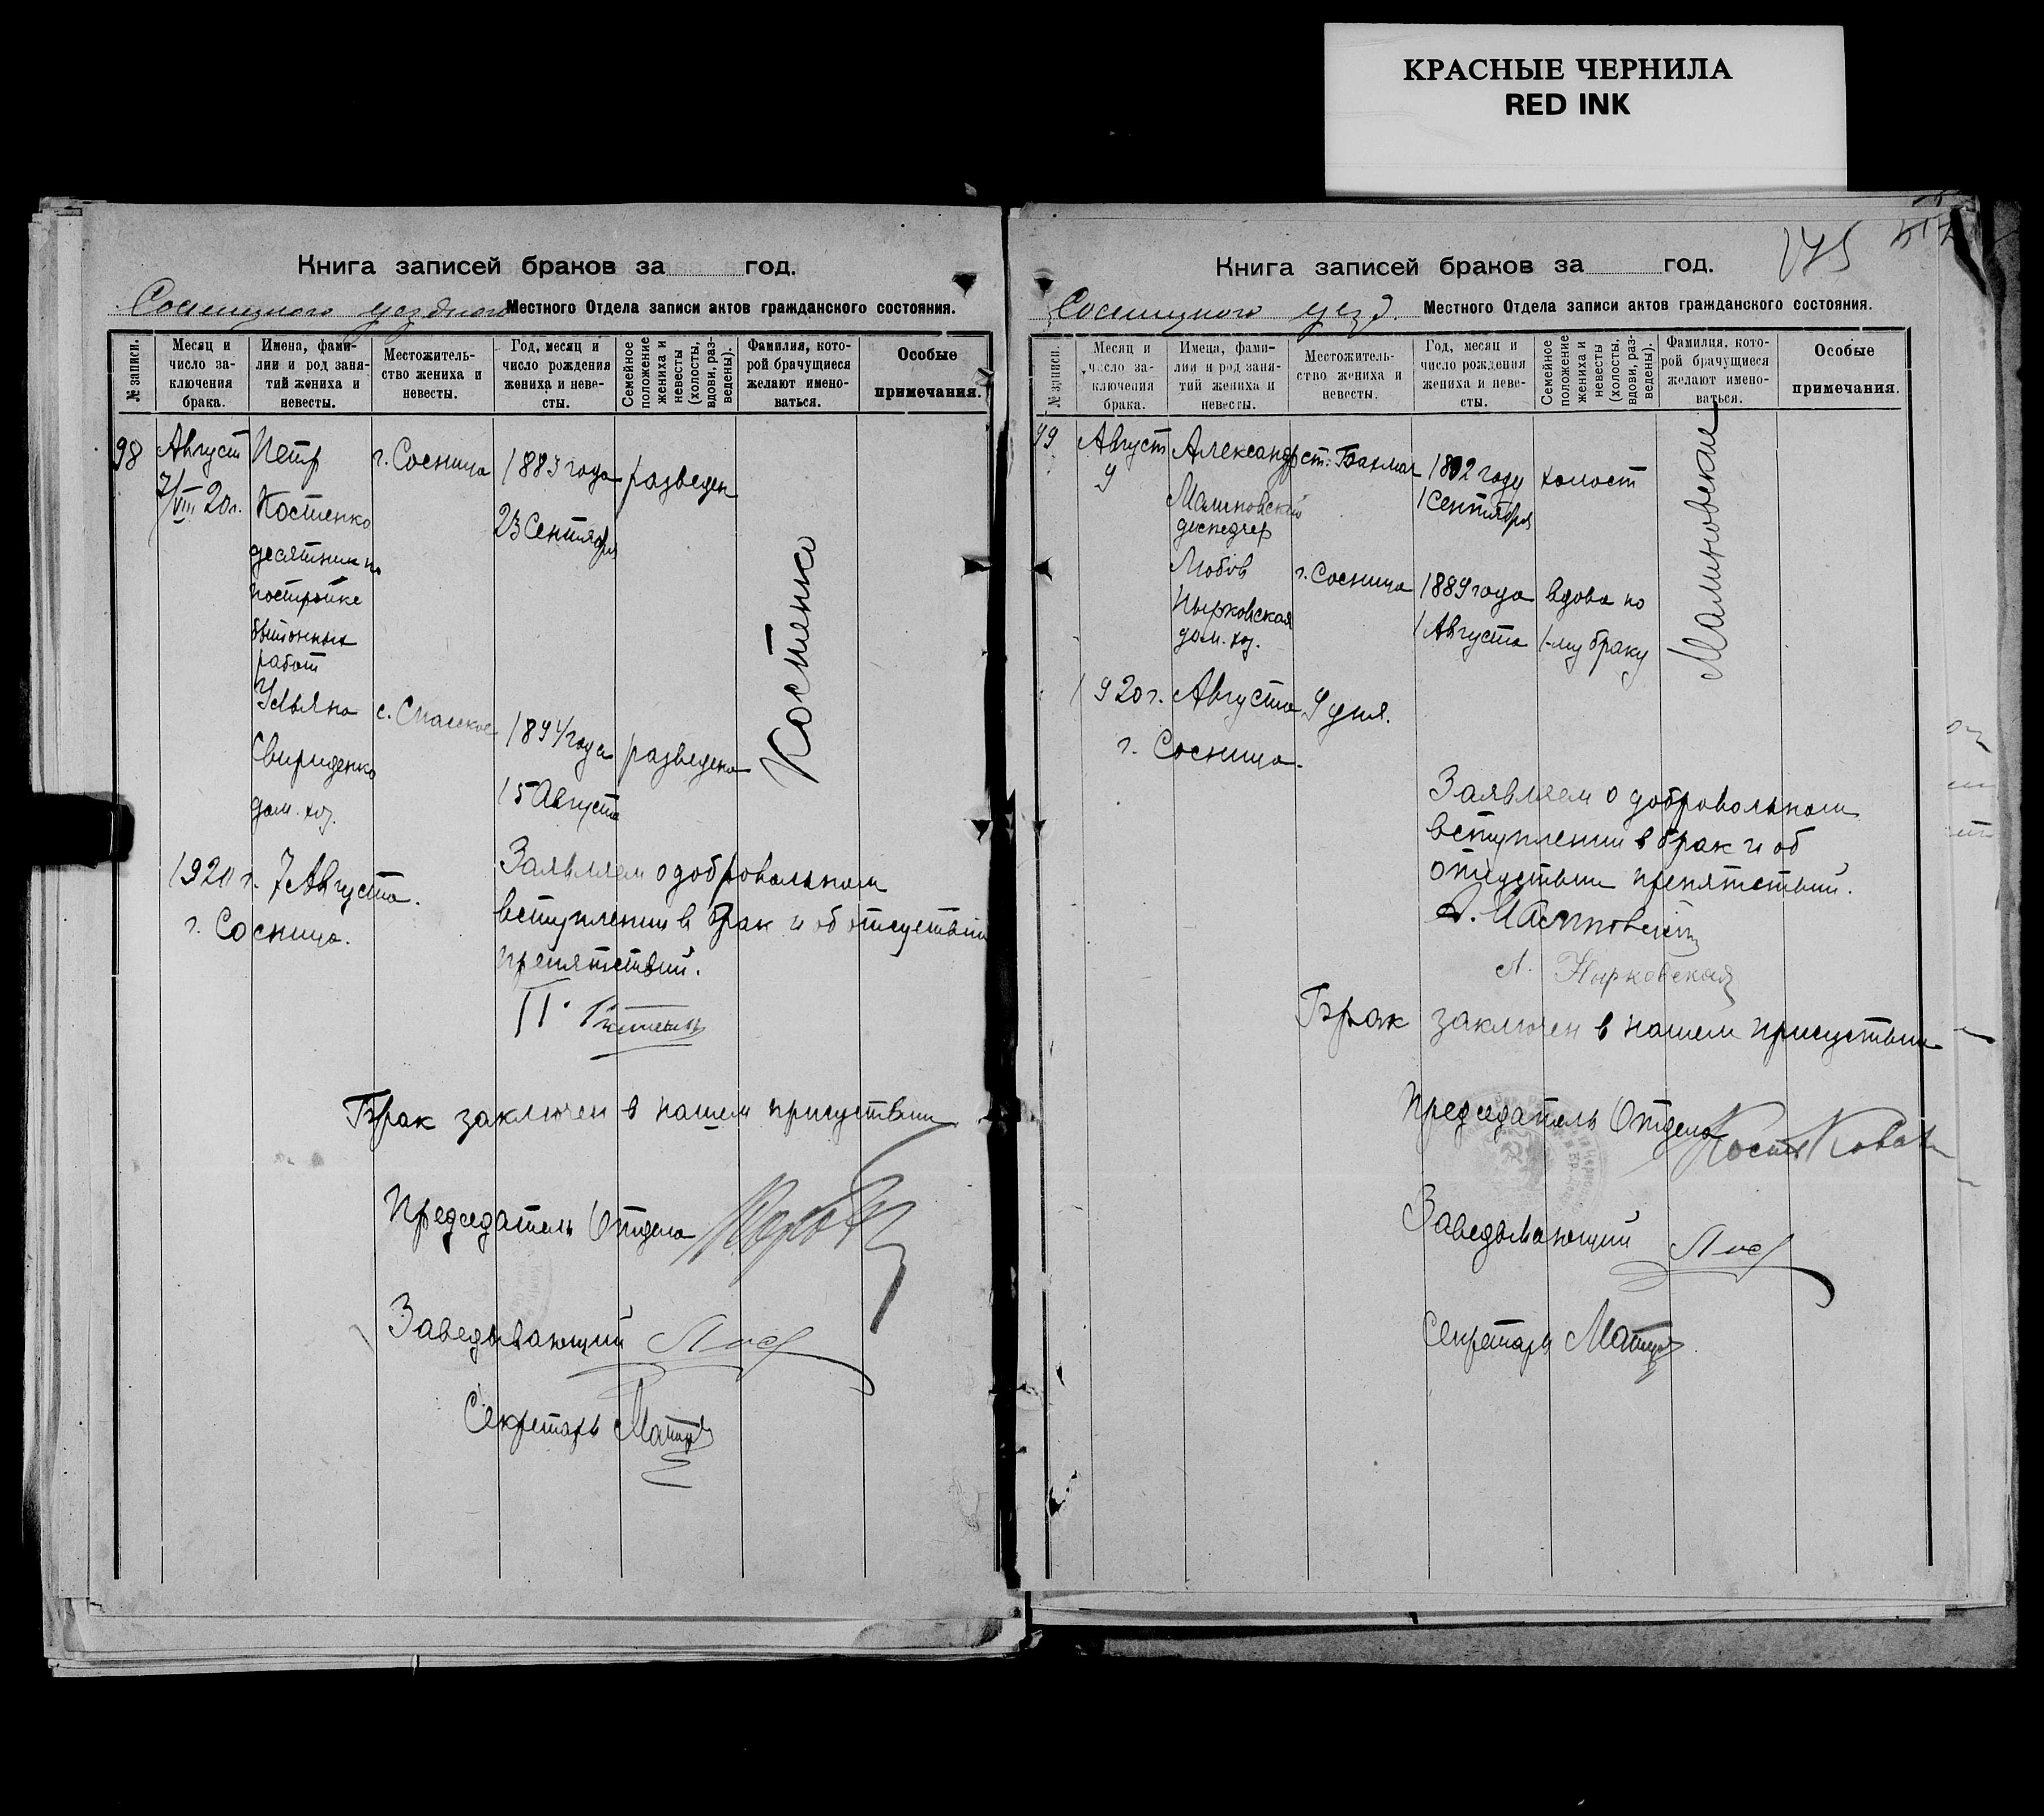 КРАСНЫЕ ЧЕРНИЛА
RED INK
Книга записей браков за год.
Сосницкого уездного Местного Отдела записи актов гражданского состояния.
№ записи.
Месяц и число за-
ключения
брака.
Имена, фами-
лии и род заня-
тий жениха и
невесты.
Местожитель-
ство жениха и
невесты.
Год, месяц и
число рождения
жениха и неве-
сты.
Семейное
положение
жениха и
невесты
(холосты,
вдовы, раз-
ведены).
Фамилия, кото-
рой брачущиеся
желают имено-
ваться.
Особые
примечания.
98
Август
7/VIII 20 г.
Петр
Костенко
десятник по
постройке
бетонных
работ
г. Сосница
1883 года
23 Сентября
разведен
Костенко
Ульяна
Свириденко
дом. хоз.
с. Спасское
1891 года
15 Августа
разведена
1920 г. 7 Августа.
г. Сосница.
Заявляем о добровольном
вступлении в брак и об отсутствии
препятствий.
Брак заключен в нашем присутствии
Председатель Отдела
Заведывающий
Секретарь
175
Книга записей браков за год.
Сосницкого уезд. Местного Отдела записи актов гражданского состояния.
№ записи.
Месяц и
число за-
ключения
брака.
Имена, фами-
лии и род заня-
тий жениха и
невесты.
Местожитель-
ство жениха и
невесты.
Год, месяц и
число рождения
жениха и неве-
сты.
Семейное
положение
жениха и
невесты
(холосты,
вдовы, раз-
ведены).
Фамилия, кото-
рой брачущиеся
желают имено-
ваться.
Особые
примечания.
99
Август
9
Александр
Малиновский
ст. Бахмач
1 Сентября
холост
Малиновские
Любов
Нырковская
дом. хоз.
г. Сосница
1889 года
1 Августа
вдова по
1-му браку
1920 г. Августа 9 дня.
г. Сосница.
Заявляем о добровольном
вступлении в брак и об
отсутствии препятствий.
А. Малиновский
Л. Нырковская
Брак заключен в нашем присутствии
Председатель Отдела
Заведывающий
Секретарь